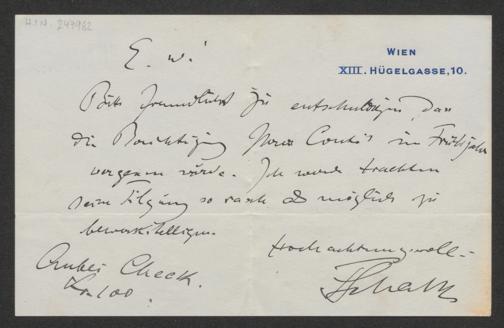 H.I.N. 247982
WIEN
XIII. HÜGELGASSE, 10.
E. W.
Bitte freundlichst zu entschuldigen, dass
die Berichtigung Ihres Contos im Frühjahr
vergessen wurde. Ich werde trachten
seine Tilgung so rasch als möglich zu
bewerkstelligen.
Hochachtungsvoll
Anbei Check.
Kr 100.